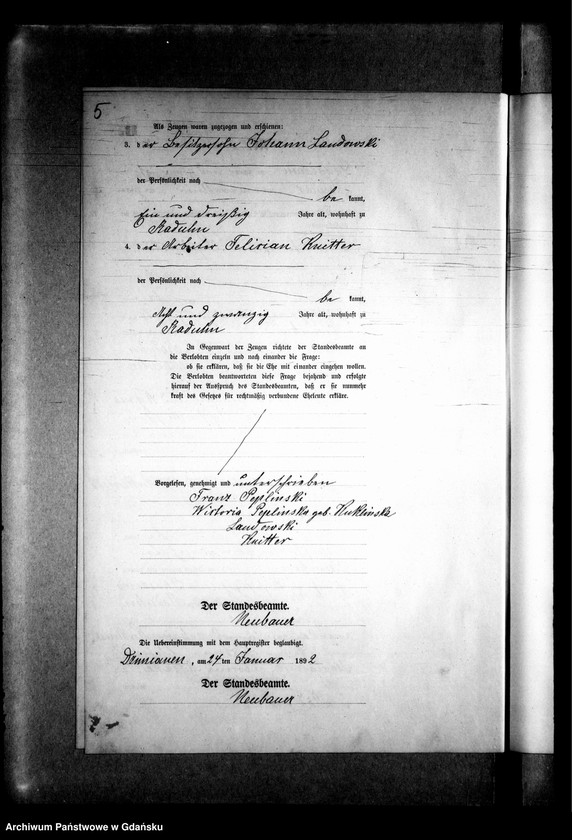 5
Als Zeugen waren zugezogen und erschienen:
3. der Besitzersohn Johann Landowski
der Persönlichkeit nach
be kannt,
Ein und dreißig Jahre alt, wohnhaft zu
Raduhn
4. der Arbeiter Felician Knitter
der Persönlichkeit nach
be kannt,
Acht und zwanzig Jahre alt, wohnhaft zu
Raduhn
In Gegenwart der Zeugen richtete der Standesbeamte an
die Verlobten einzeln und nach einander die Frage:
ob sie erklären, daß sie die Ehe mit einander eingehen wollen.
Die Verlobten beantworteten diese Frage bejahend und erfolgte
hierauf der Ausspruch des Standesbeamten, daß er sie nunmehr
kraft des Gesetzes für rechtmäßig verbundene Eheleute erkläre.
Vorgelesen, genehmigt und unterschrieben
Franz Peplinski
Wiktoria Peplinska geb. Kuklinska
Landowski
Knitter
Der Standesbeamte.
Neubauer
Die Uebereinstimmung mit dem Hauptregister beglaubigt.
, am 24 ten Januar 1892
Der Standesbeamte.
Neubauer
Archiwum Państwowe w Gdańsku